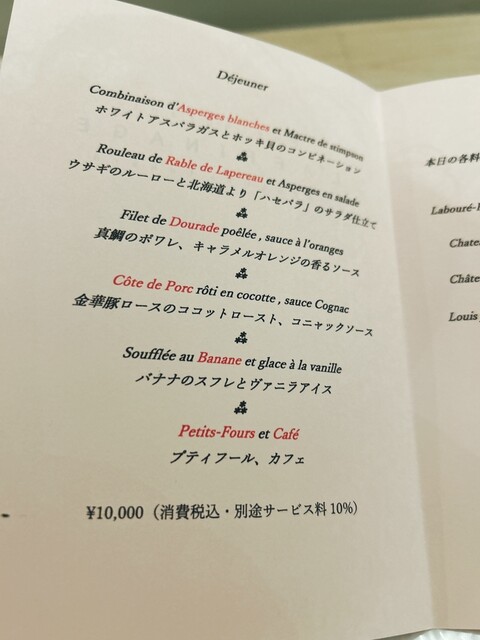 Déjeuner
Combinaison d'Asperges blanches et Mactre de stimpson
ホワイトアスパラガスとホッキ貝のコンビネーション
Rouleau de Rable de Lapereau et Asperges en salade
ウサギのルーローと北海道より「ハセパラ」のサラダ仕立て
Filet de Dourade poêlée , sauce à l'oranges
真鯛のポワレ、キャラメルオレンジの香るソース
Côte de Porc rôti en cocotte , sauce Cognac
金華豚ロースのココットロースト、コニャックソース
Soufflée au Banane et glace à la vanille
バナナのスフレとヴァニラアイス
Petits-Fours et Café
プティフール、カフェ
¥10,000（消費税込・別途サービス料 10%）
本日の各料
Labouré-
Chate
Châte
Louis